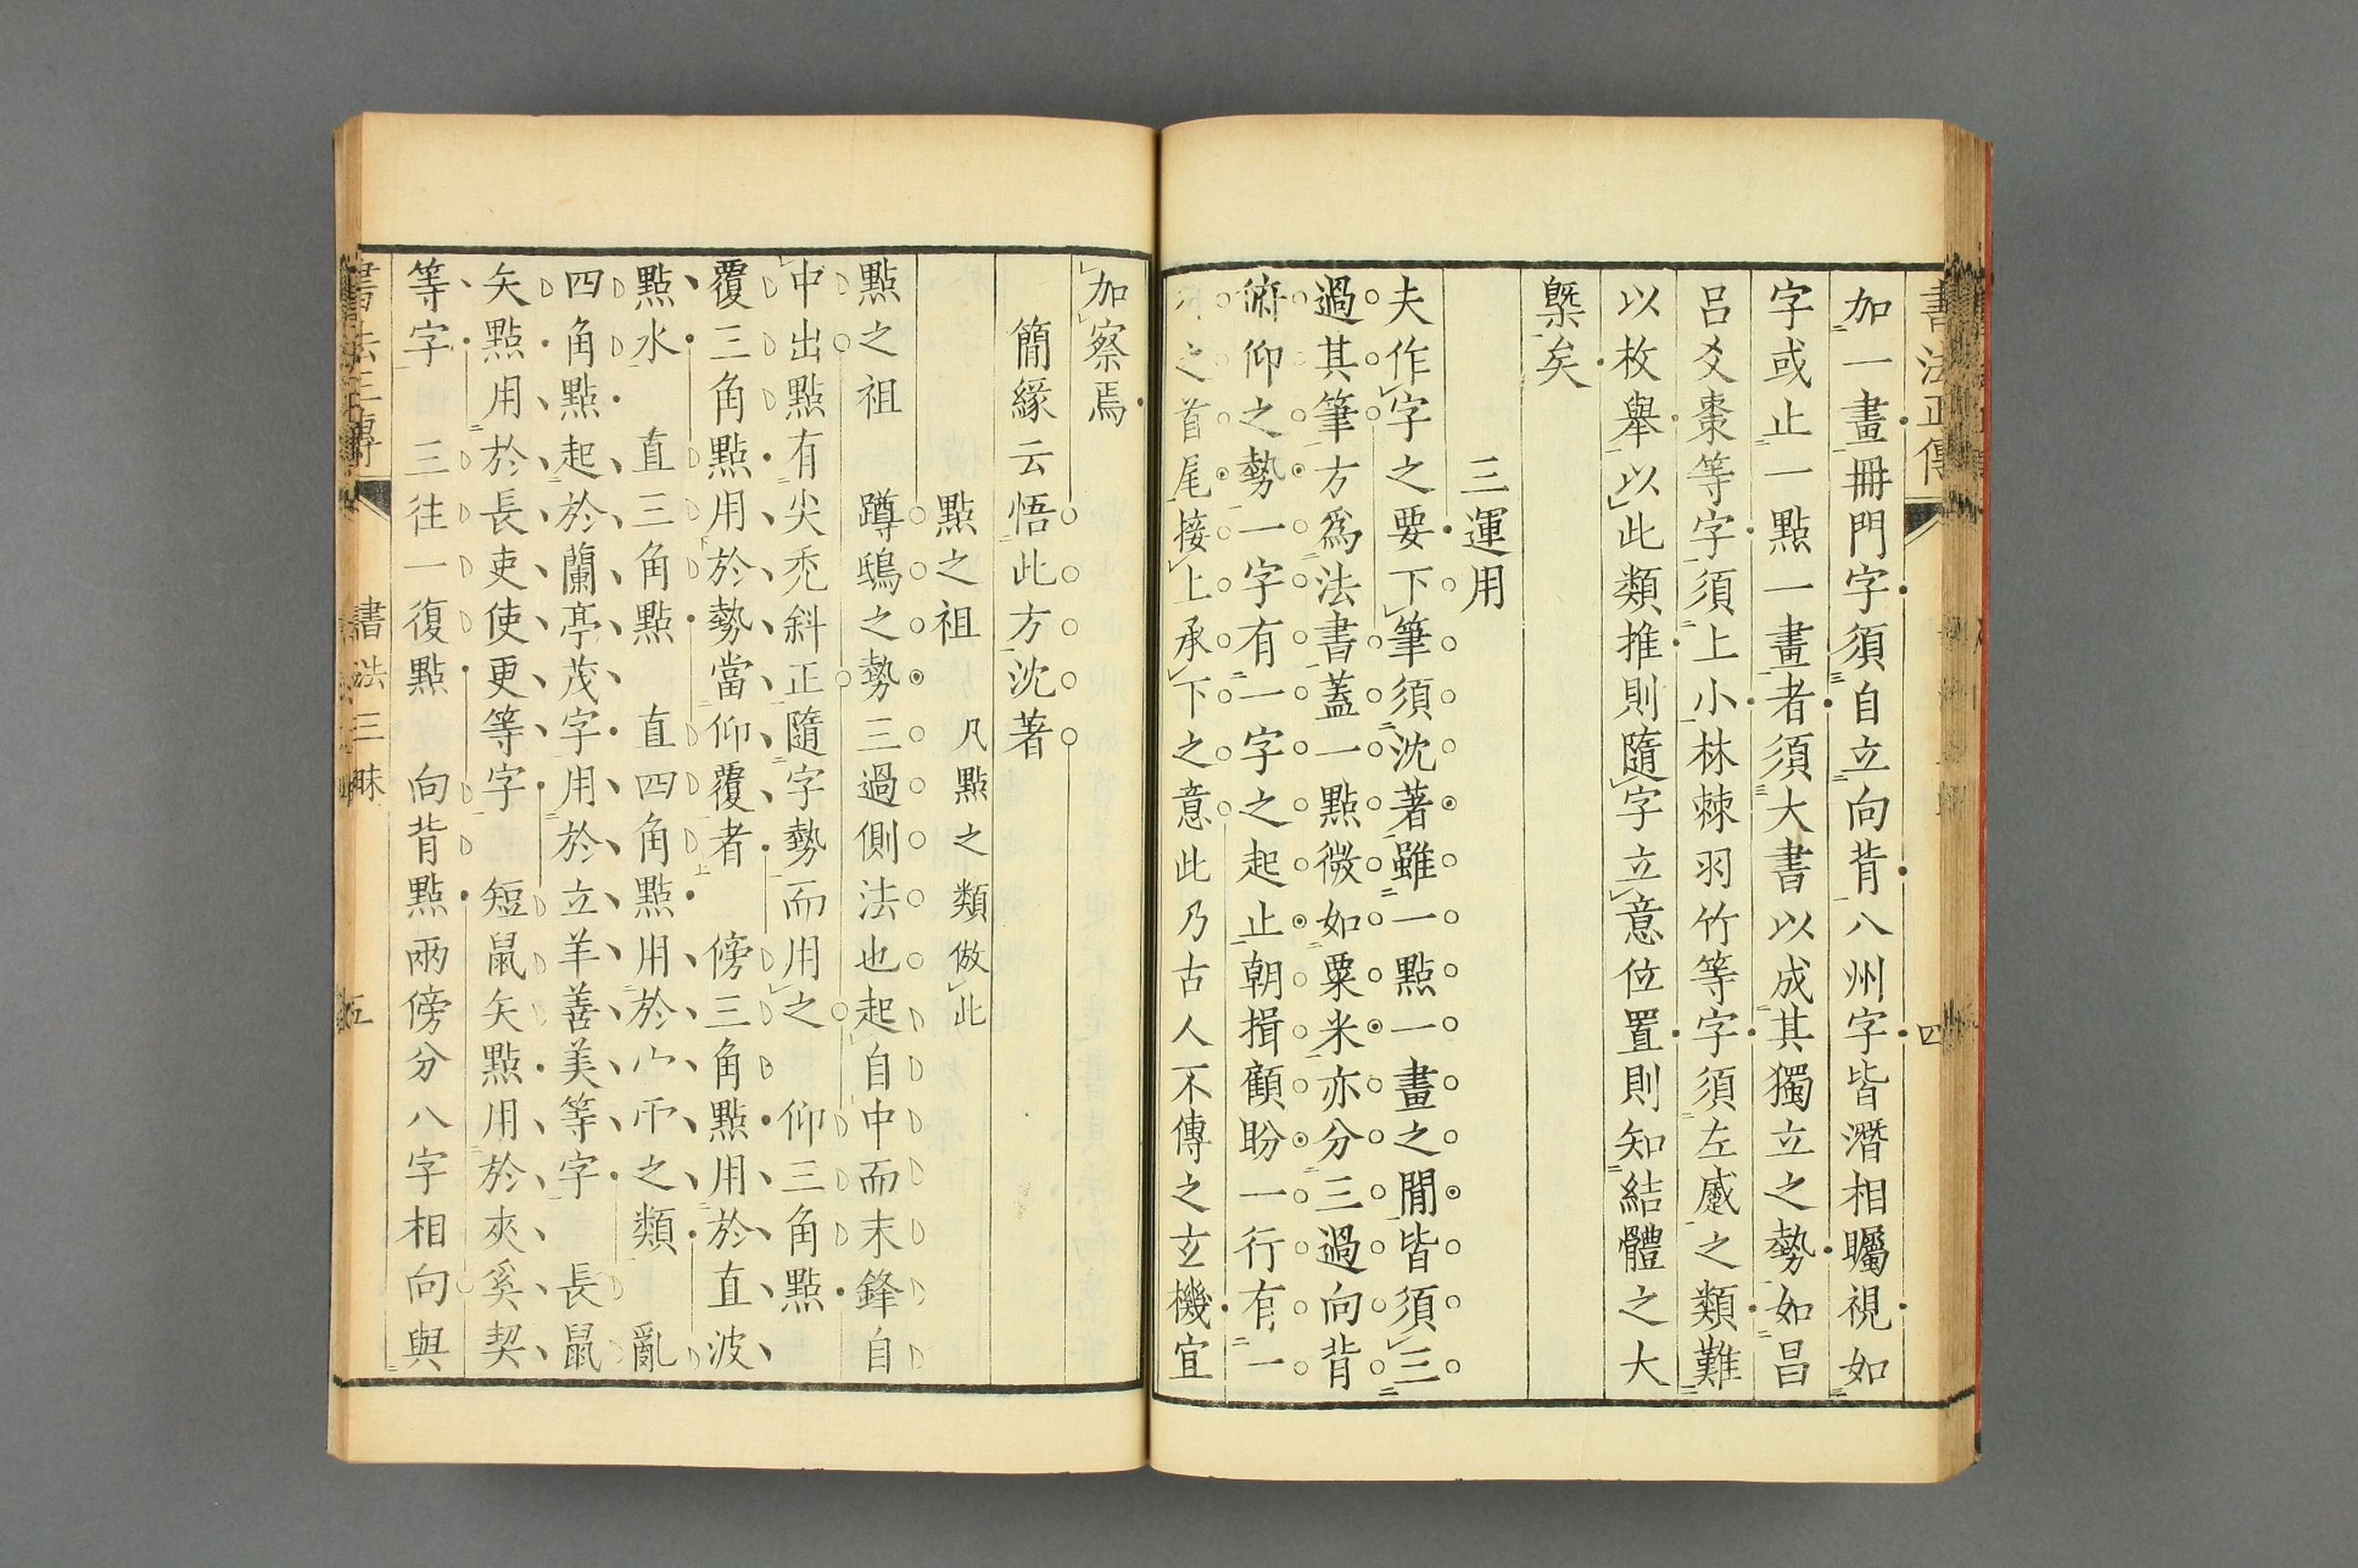 書法正傳
四
加一畫冊門字須自立向背八州字皆潛相矚視如
字或止一點一畫者須大書以成其獨立之勢如昌
呂爻棗等字須上小林棘羽竹等字須左蹙之類難
以枚舉以此類推則隨字立意位置則知結體之大
槩矣
三運用
夫作字之要下筆須沈著雖一點一畫之間皆須三
過其筆方爲法書蓋一點微如粟米亦分三過向背
俯仰之勢一字有一字之起止朝揖顧盼一行有一
之首尾接上承下之意此乃古人不傳之玄機宜
加察焉
簡緣云悟此方沈著
點之祖 凡點之類倣此
點之祖 蹲鴟之勢三過側法也起自中而末鋒自
中出點有尖禿斜正隨字勢而用之 仰三角點
覆三角點用於勢當仰覆者 傍三角點用於直波
點水 直三角點 直四角點用於宀㓁之類 亂
四角點起於蘭亭茂字用於立羊善美等字 長鼠
矢點用於長吏使更等字 短鼠矢點用於夾奚契
等字 三往一復點 向背點兩傍分八字相向與
書法正傳 書法三昧 五